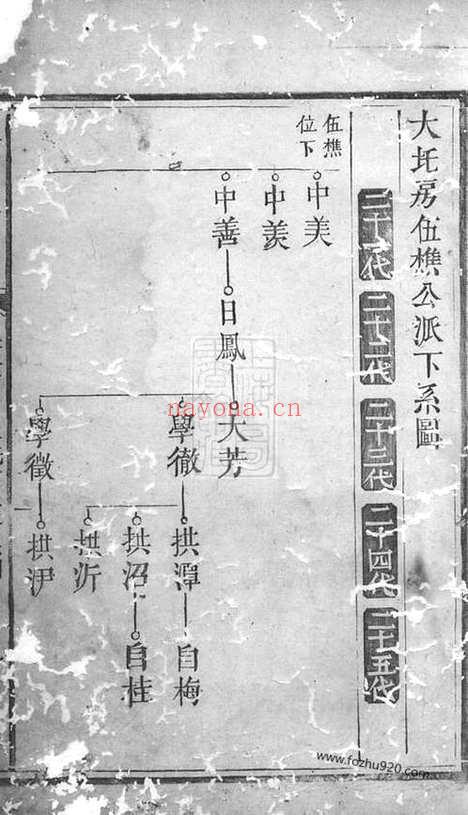 大圫房伍樵公派下系圖
二十一代
二十二代
二十三代
二十四代
二十五代
伍樵
位下
中美
中羙
中善
日鳳
大芳
學徹
拱潭
自梅
拱沼
自桂
拱沂
學徵
拱尹
nayona.cn
www.fozhu920.com